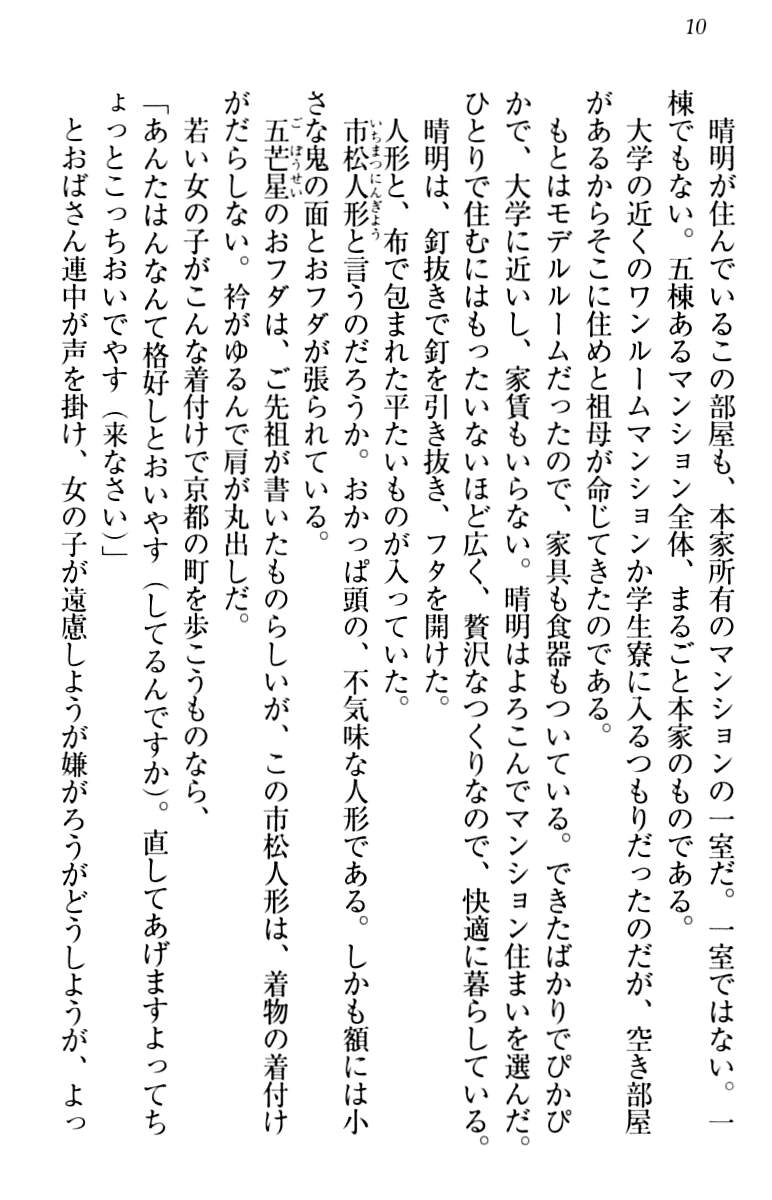 10
晴明が住んでいるこの部屋も、本家所有のマンションの一室だ。一室ではない。一
棟でもない。五棟あるマンション全体、まるごと本家のものである。
大学の近くのワンルームマンションか学生寮に入るつもりだったのだが、空き部屋
があるからそこに住めと祖母が命じてきたのである。
もとはモデルルームだったので、家具も食器もついている。できたばかりでぴかぴ
かで、大学に近いし、家賃もいらない。晴明はよろこんでマンション住まいを選んだ。
ひとりで住むにはもったいないほど広く、贅沢なつくりなので、快適に暮らしている。
晴明は、釘抜きで釘を引き抜き、フタを開けた。
人形と、布で包まれた平たいものが入っていた。
市松人形と言うのだろうか。おかっぱ頭の、不気味な人形である。しかも額には小
さな鬼の面とおフダが張られている。
五芒星のおフダは、ご先祖が書いたものらしいが、この市松人形は、着物の着付け
がだらしない。衿がゆるんで肩が丸出しだ。
若い女の子がこんな着付けで京都の町を歩こうものなら、
「あんたはんなんて格好しとおいやす（してるんですか）。直してあげますよってち
ょっとこっちおいでやす（来なさい）」
とおばさん連中が声を掛け、女の子が遠慮しようが嫌がろうがどうしようが、よっ